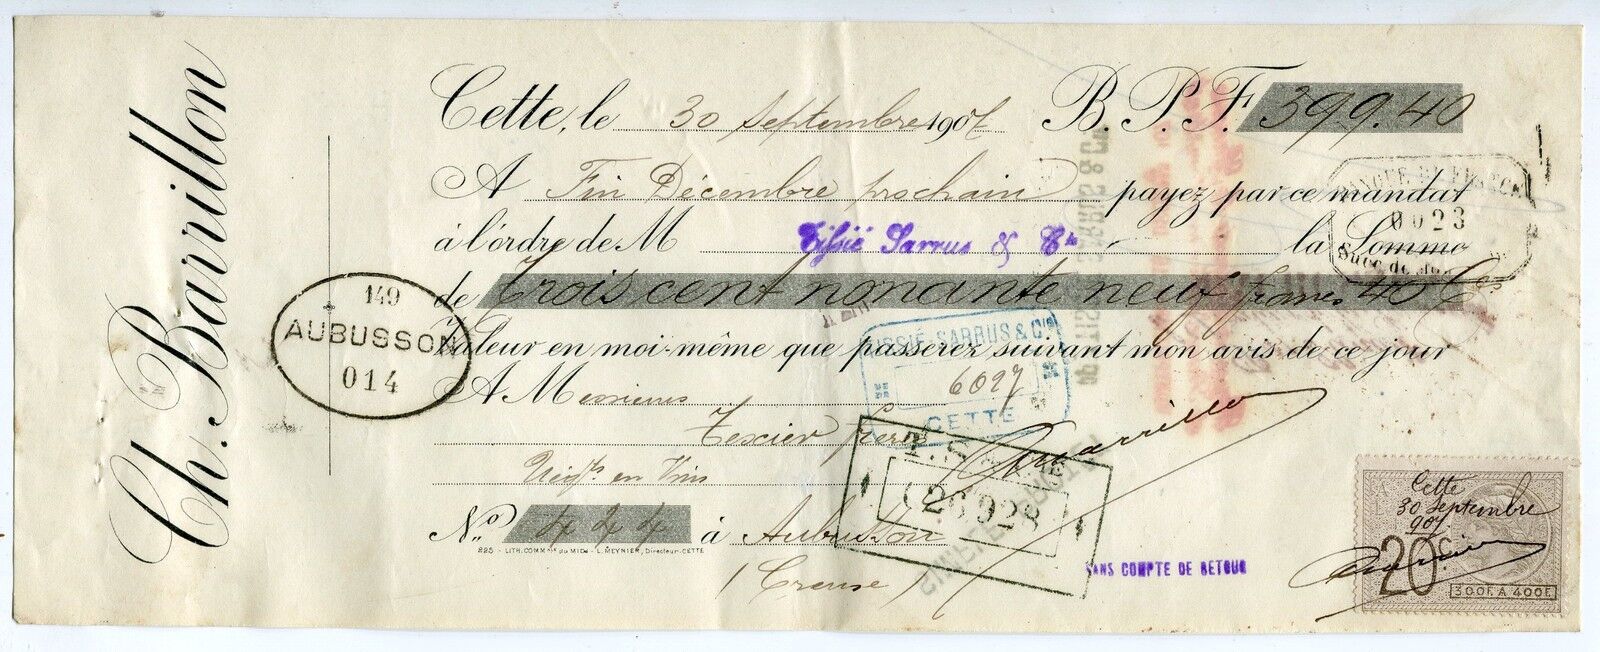 Ch. Barrillon
Cette, le 30 Septembre 1907 B. P. F. 399.40
A Fin Décembre prochain payez par ce mandat
à l'ordre de M Sarrus & Cie la Somme
de Trois cent nonante neuf francs 40 Ces
Valeur en moi-même que passerez suivant mon avis de ce jour
A Messieurs
Texier frères
Négts en Vins
No 444 à Aubusson
(Creuse)
825 - LITH. COMMle DU MIDI - L. MEYNIER, Directeur-CETTE
149
AUBUSSON
014
SARRUS & Cie
6097
CETTE
26928
0023
Succ de
Ch Barrillon
SANS COMPTE DE RETOUR
Cette
30 Septembre
907
20 c
300F. A 400F.